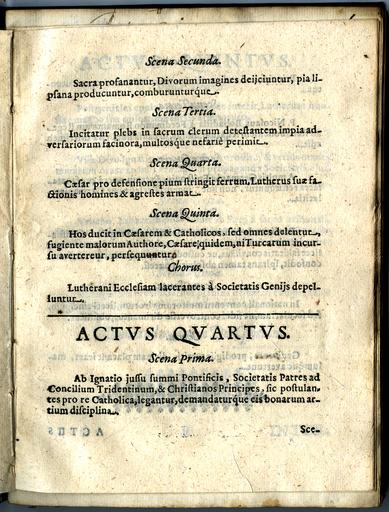 Scena Secunda.
Sacra profanantur, Divorum imagines dejiciuntur, pia li-
psana producuntur, comburunturque.
Scena Tertia.
Incitatur plebs in sacrum clerum detestantem impia ad-
versariorum facinora, multosque nefariè perimit.
Scena Quarta.
Cæsar pro defensione pium stringit ferrum, Lutherus suæ fa-
ctionis homines & agrestes armat.
Scena Quinta.
Hos ducit in Cæsarem & Catholicos, sed omnes delentur,
fugiente malorum Authore, Cæsare quidem, ni Turcarum incur-
su averteretur, persequuturo
Chorus.
Lutherani Ecclesiam lacerantes à Societatis Genijs depel-
luntur.
ACTVS QVARTVS.
Scena Prima.
Ab Ignatio jussu summi Pontificis, Societatis Patres ad
Concilium Tridentinum, & Christianos Principes, sic postulan-
tes pro re Catholica, legantur, demandaturque eis bonarum ar-
tium disciplina.
Sce-